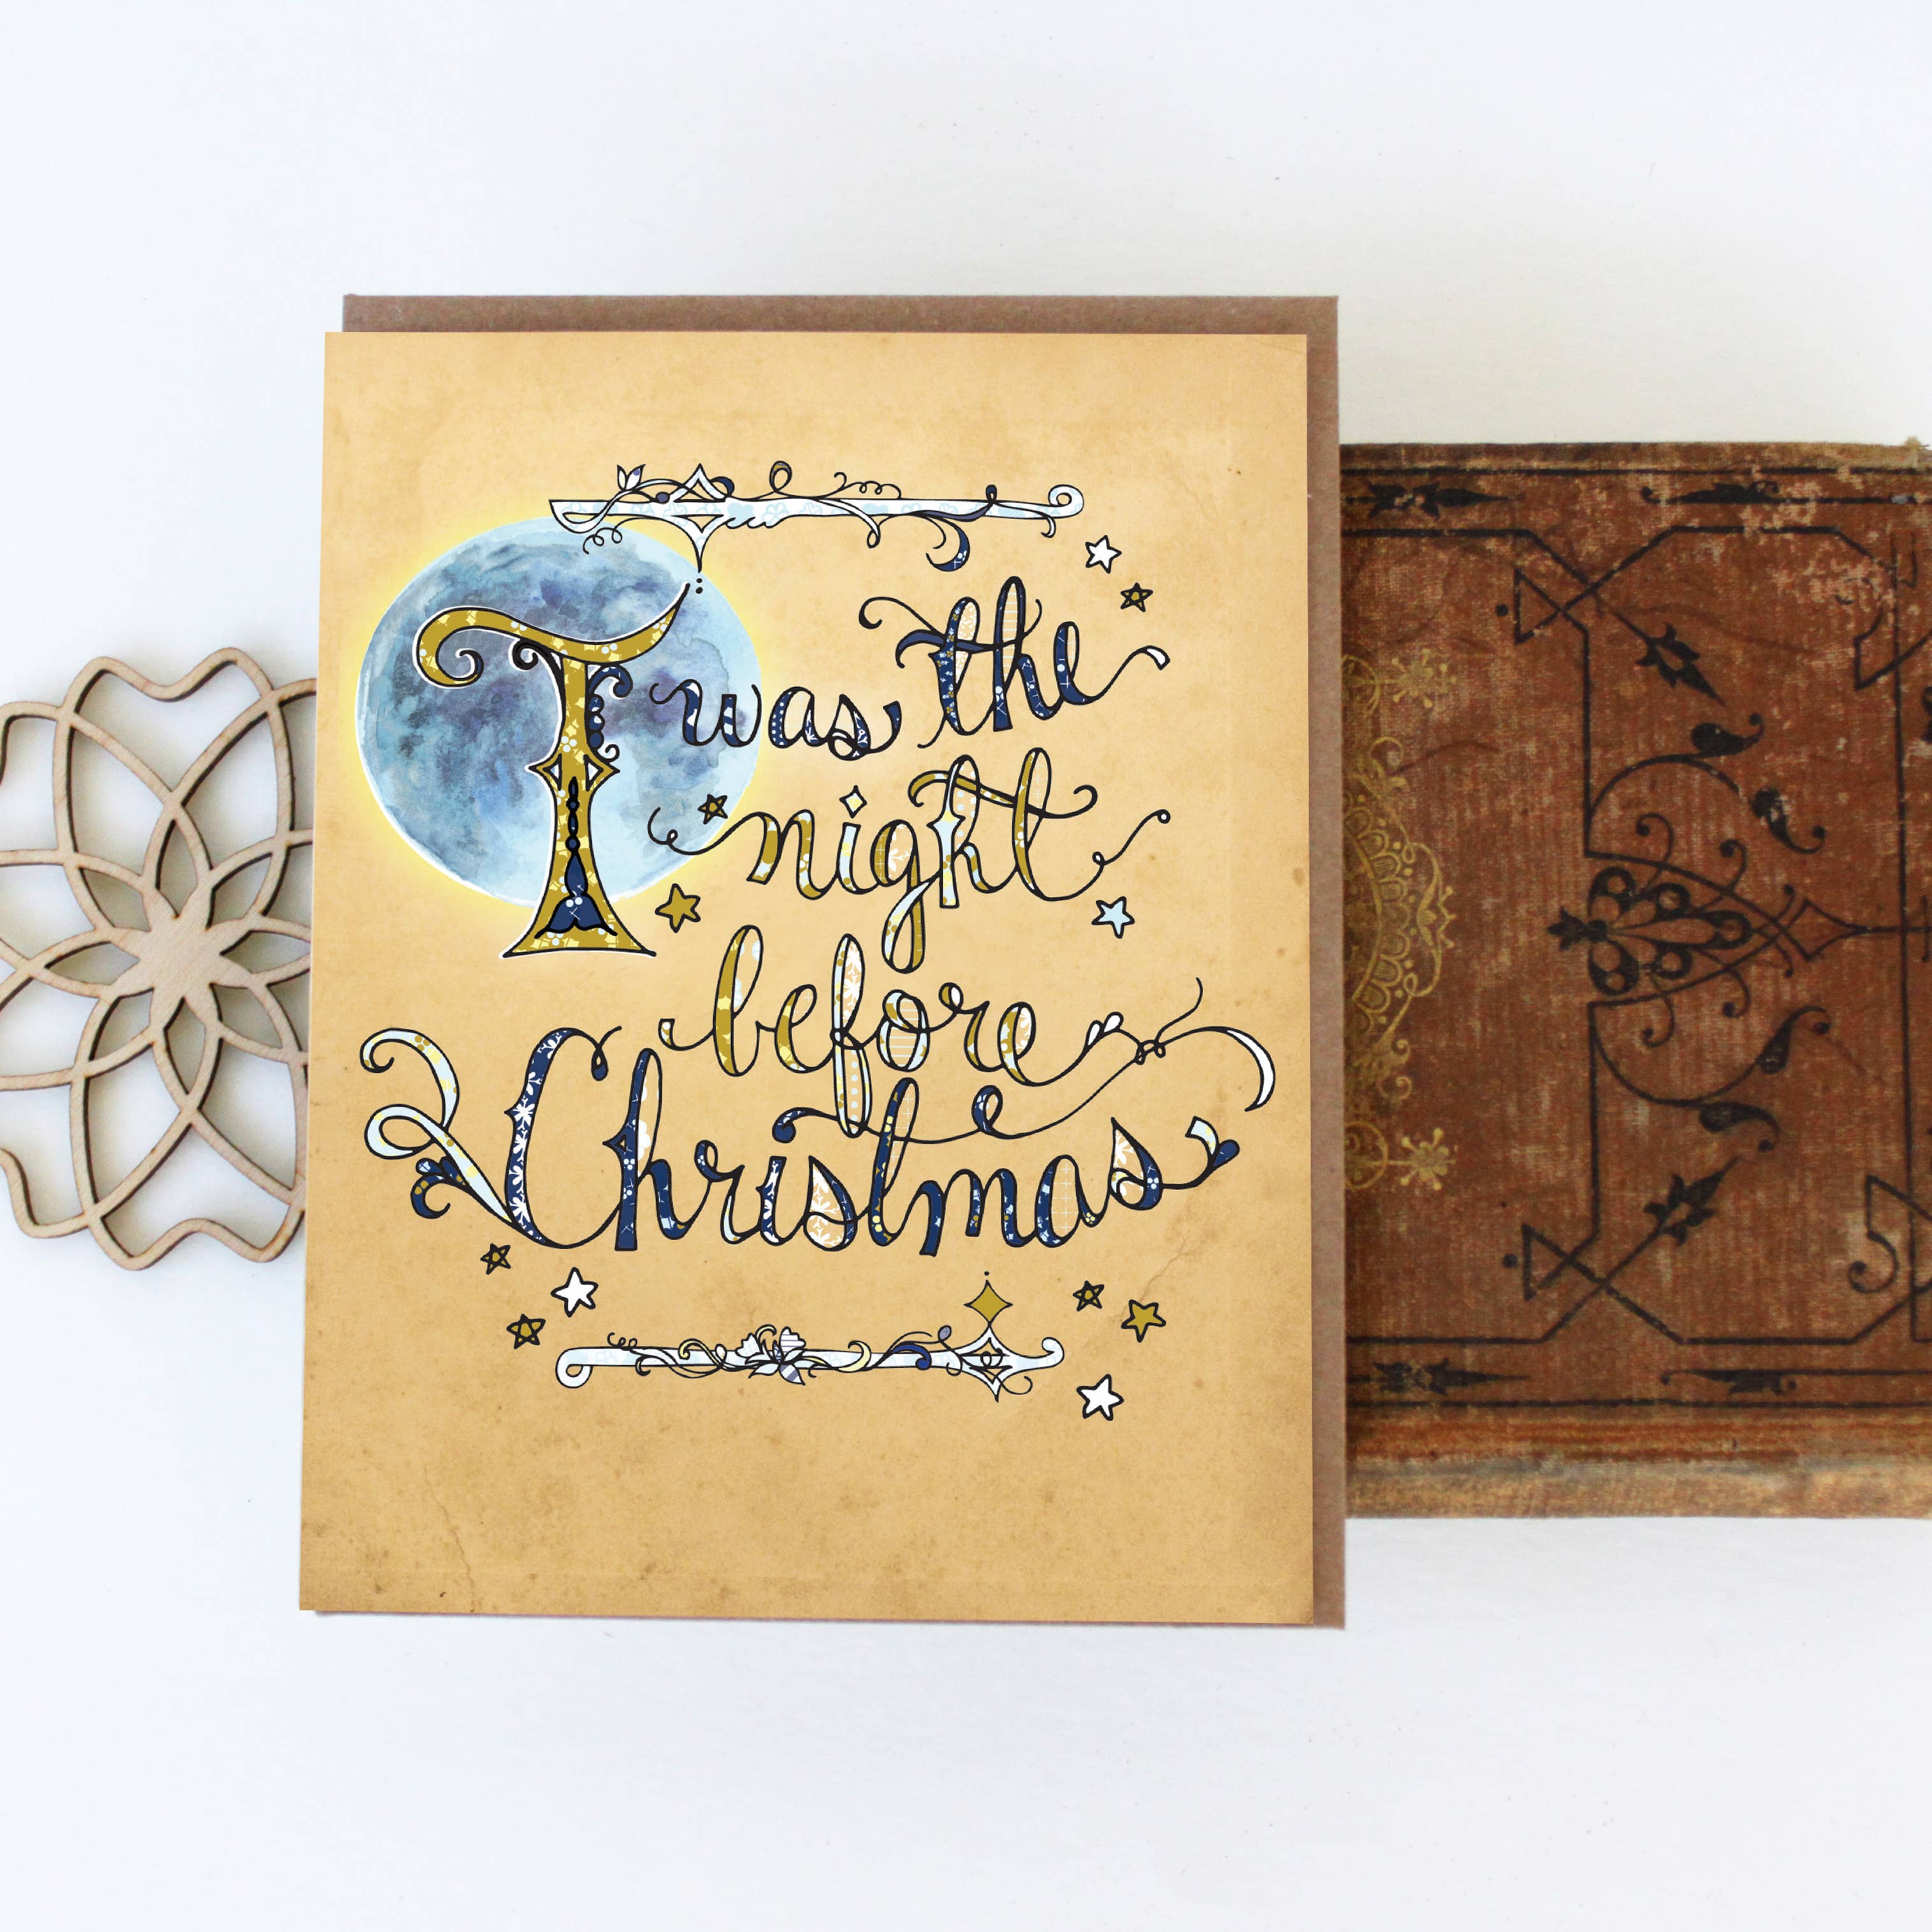 Twas the
night
before
Christmas